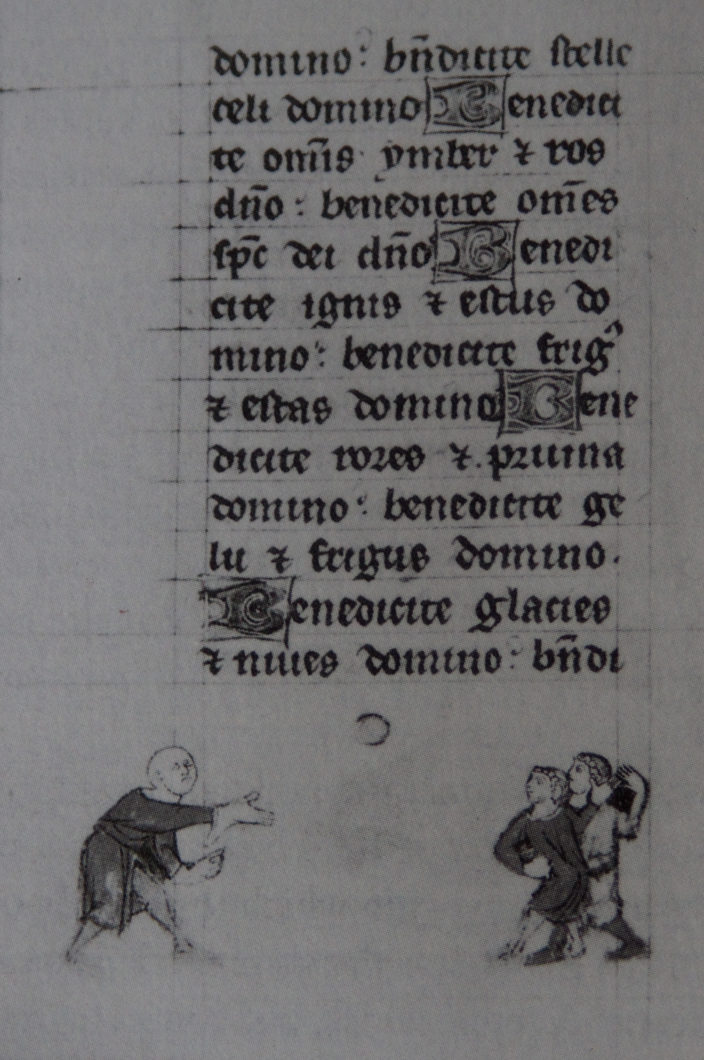 domino: bn̄dicite stelle
celi domino Benedici
te om̄is ymber ⁊ ros
dn̄o: benedicite om̄es
sp̄c dei dn̄o Benedi
cite ignis ⁊ estus do
mino: benedicite frigꝰ
⁊ estas domino Bene
dicite rores ⁊ pruina
domino: benedicite ge
lu ⁊ frigus domino.
Benedicite glacies
⁊ niues domino: bn̄di